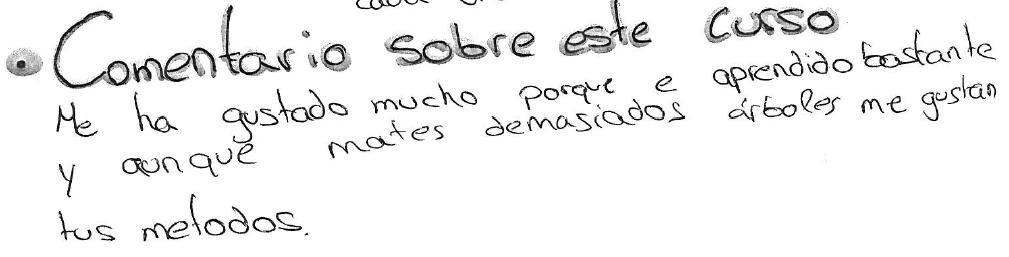 • Comentario sobre este curso
Me ha gustado mucho porque e aprendido bastante
y aunque mates demasiados árboles me gustan
tus metodos.